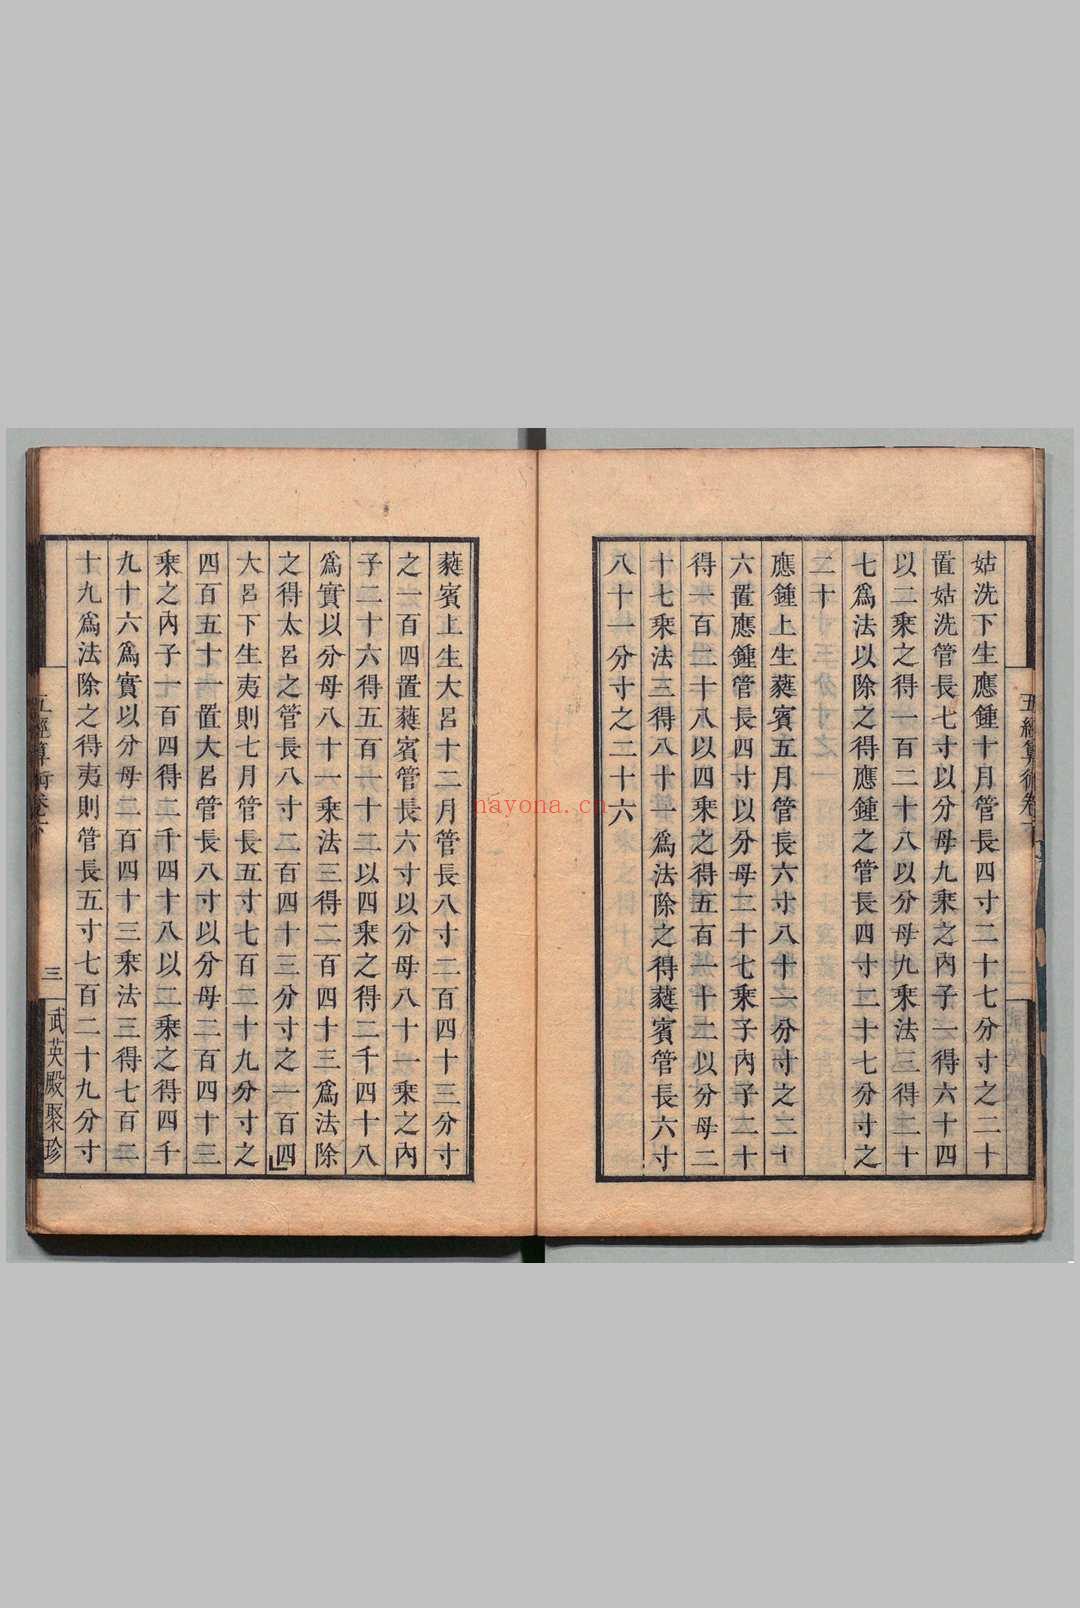 五經算術卷下
姑洗下生應鍾十月管長四寸二十七分寸之二十
置姑洗管長七寸以分母九乘之內子一得六十四
以二乘之得一百二十八以分母九乘法三得二十
七爲法以除之得應鍾之管長四寸二十七分寸之
二十
應鍾上生蕤賓五月管長六寸八十一分寸之二十
六置應鍾管長四寸以分母二十七乘子內子二十
得一百二十八以四乘之得五百一十二以分母二
十七乘法三得八十一爲法除之得蕤賓管長六寸
八十一分寸之二十六
蕤賓上生大呂十二月管長八寸二百四十三分寸
之一百四置蕤賓管長六寸以分母八十一乘之內
子二十六得五百一十二以四乘之得二千四十八
爲實以分母八十一乘法三得二百四十三爲法除
之得太呂之管長八寸二百四十三分寸之一百四
大呂下生夷則七月管長五寸七百二十九分寸之
四百五十一置大呂管長八寸以分母二百四十三
乘之內子一百四得二千四十八以二乘之得四千
九十六爲實以分母二百四十三乘法三得七百二
十九爲法除之得夷則管長五寸七百二十九分寸
五經算術卷下
三
武英殿聚珍
nayona.cn